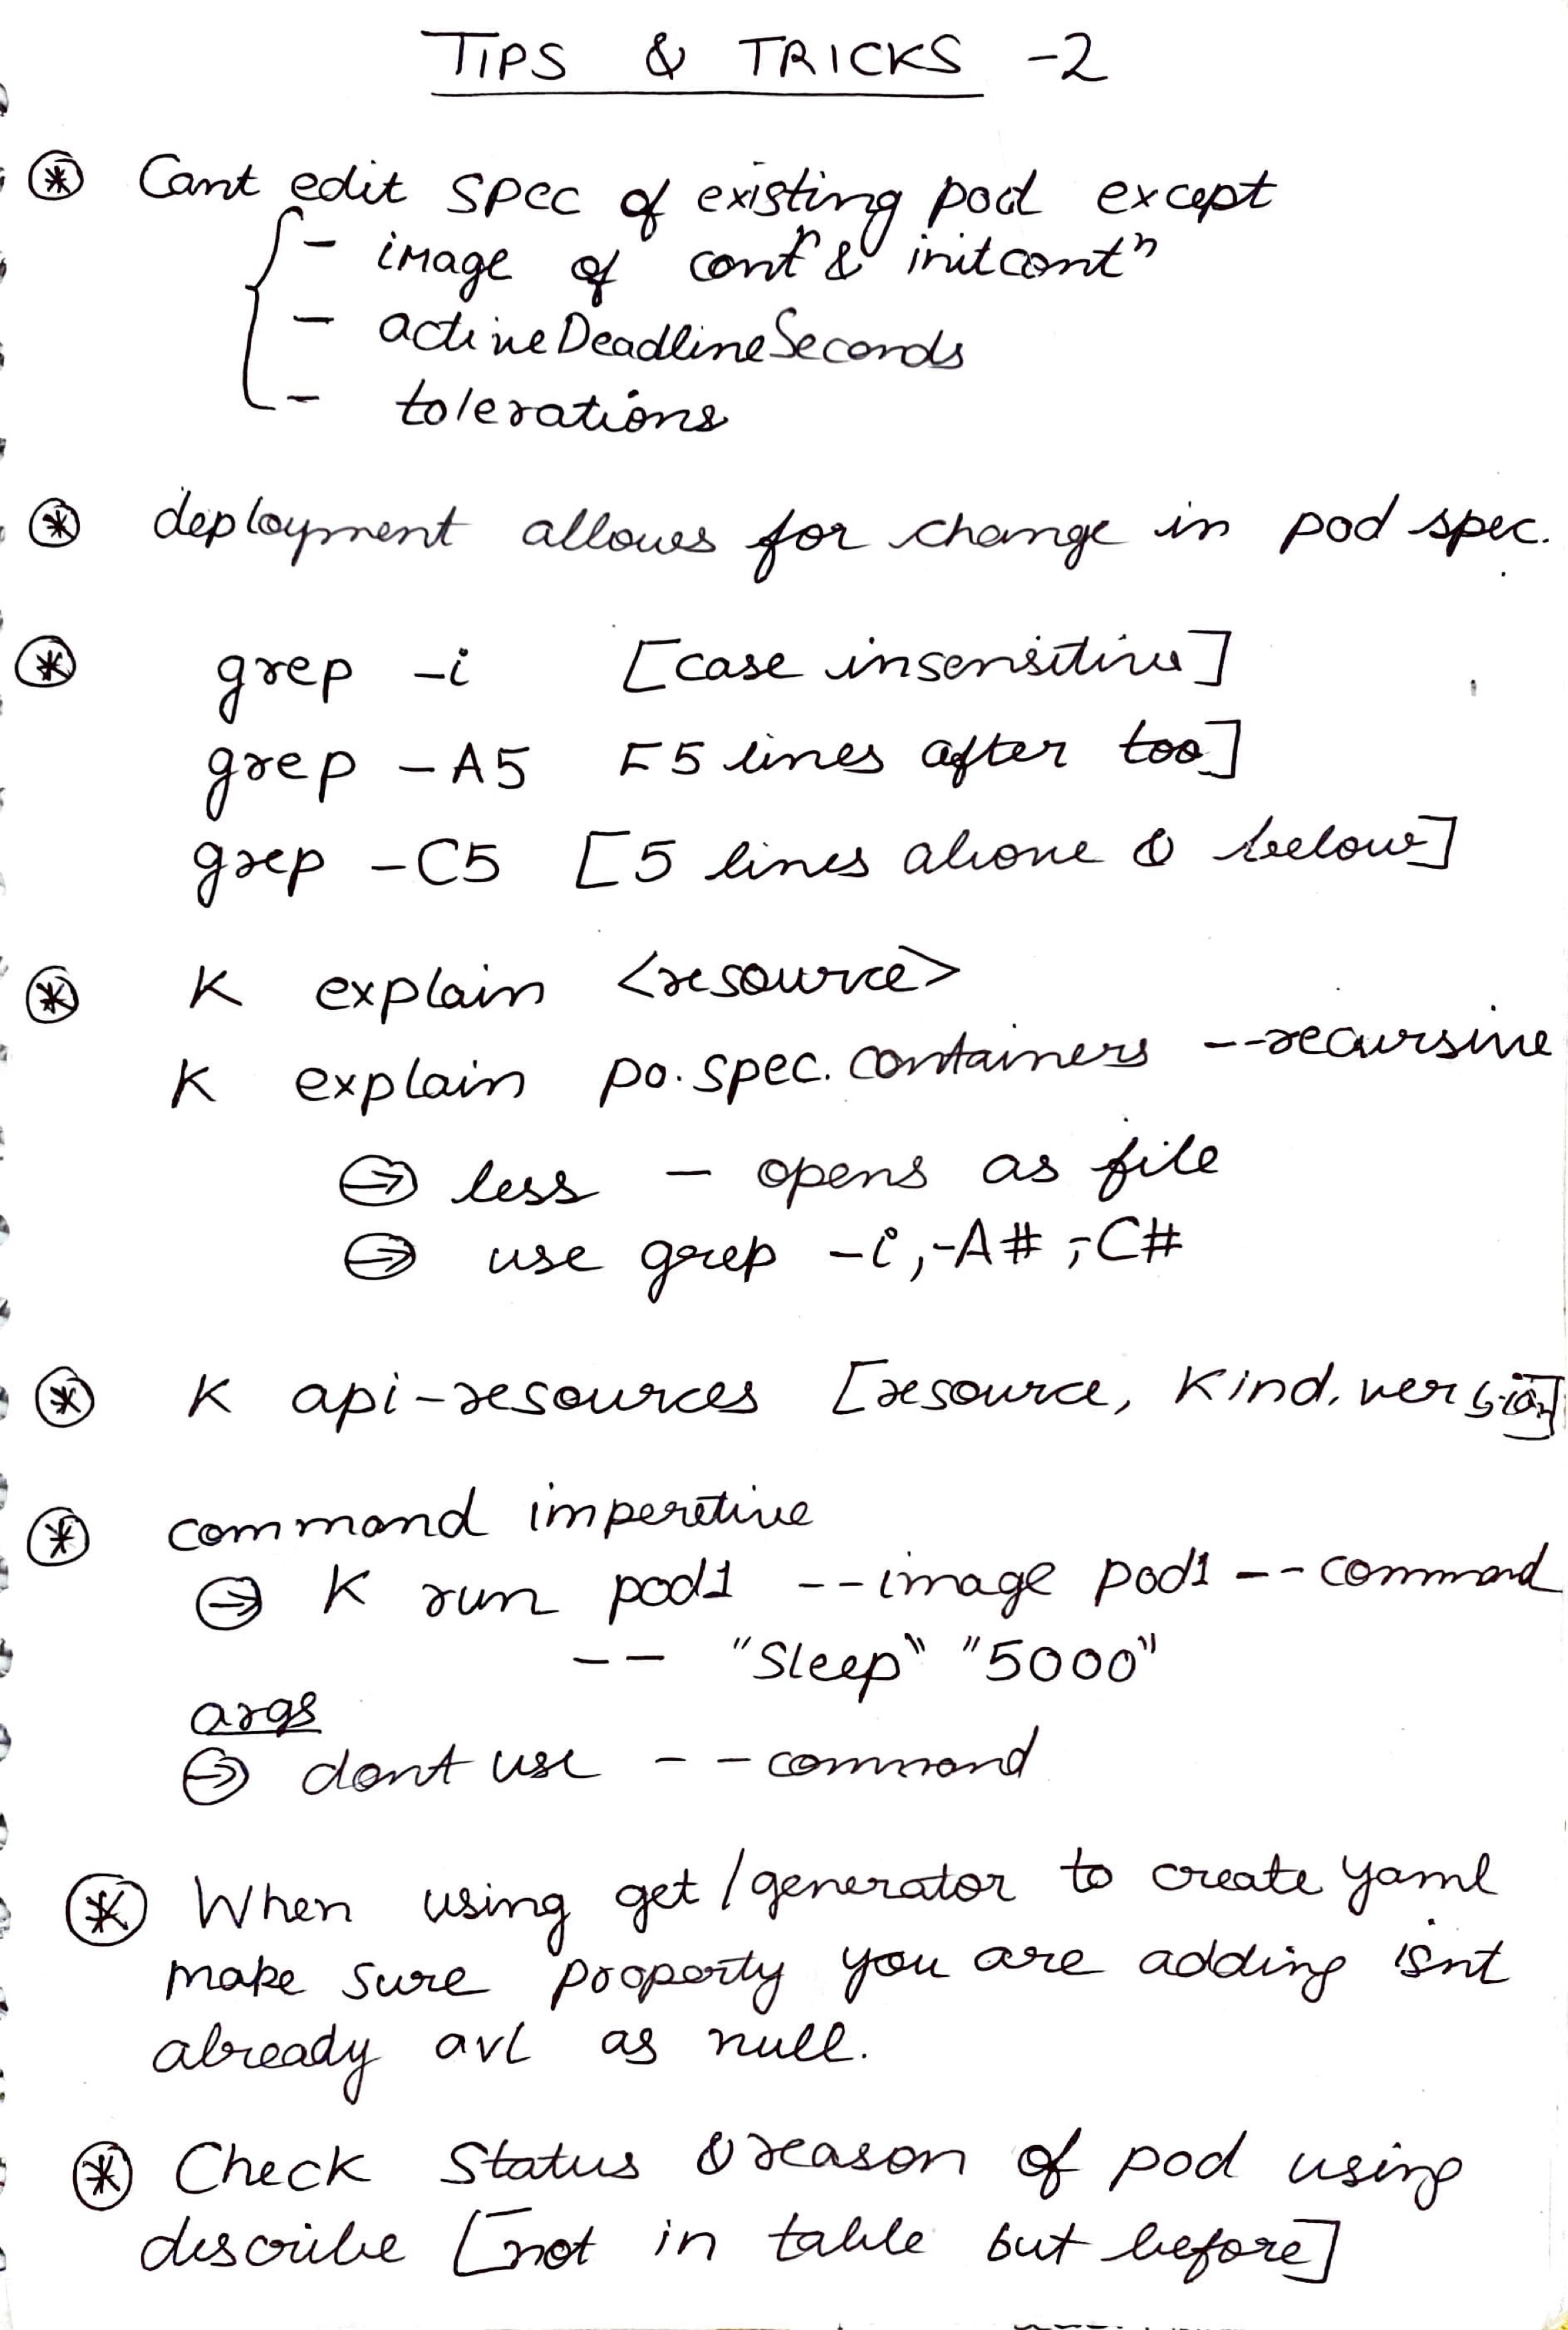 TIPS & TRICKS -2
⊛ Cant edit spec of existing pod except
- image of contn & initcontn
- activeDeadlineSeconds
- tolerations
⊛ deployment allows for change in pod spec.
⊛ grep -i [case insensitive]
grep -A5 [5 lines after too]
grep -C5 [5 lines above & below]
⊛ K explain <resource>
K explain po.spec.containers --recursive
→ less - opens as file
→ use grep -i,-A#,-C#
⊛ K api-resources [resource, Kind, version]
⊛ command imperetive
→ K run pod1 --image pod1 --command
-- "Sleep" "5000"
args
→ dont use --command
⊛ When using get/generator to create yaml
make sure property you are adding isnt
already avl as null.
⊛ Check Status & reason of pod using
describe [not in table but before]